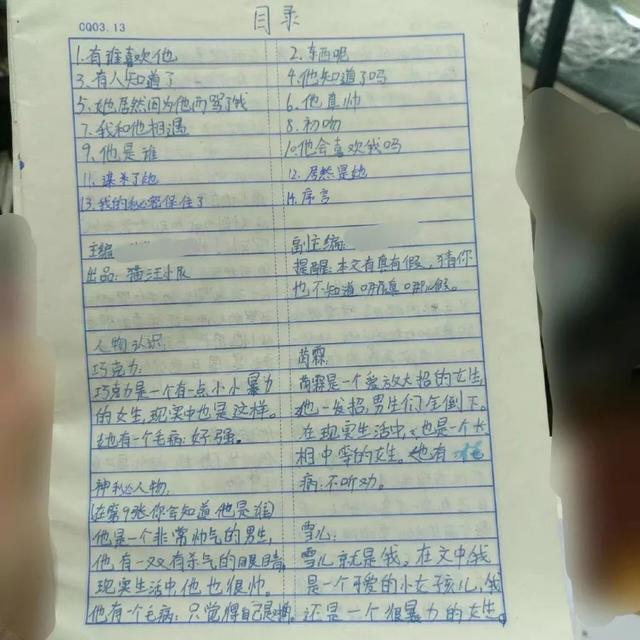 CQ03.13
目录
1.有谁喜欢他 2.东西呢
3.有人知道了 4.他知道了吗
5.她居然因为他而骂了我 6.他真帅
7.我和他相遇 8.初吻
9.他是谁 10.他会喜欢我吗
11.谋杀了她 12.居然是她
13.我的秘密保住了 14.序言
主编 副主编
出品:猫汪小队 提醒:本文有真有假,猜你
也不知道哪真哪假。
人物认识:
巧克力:
巧克力是一个有一点小小暴力
的女生,现实中也是这样。
她有一个毛病:好强。
神秘人物:
在第9张你会知道他是谁
他是一个非常帅气的男生,
他有一双有杀气的眼睛
现实生活中他也很帅。
他有一个毛病:只觉得自己是
芮霖:
芮霖是一个爱放大招的女生
她一发招,男生们全倒下。
在现实生活中,也是一个长
相中等的女生。她有
病:不听劝。
雪儿:
雪儿就是我,在文中我
是一个可爱的小女孩儿,我
还是一个很暴力的女生。